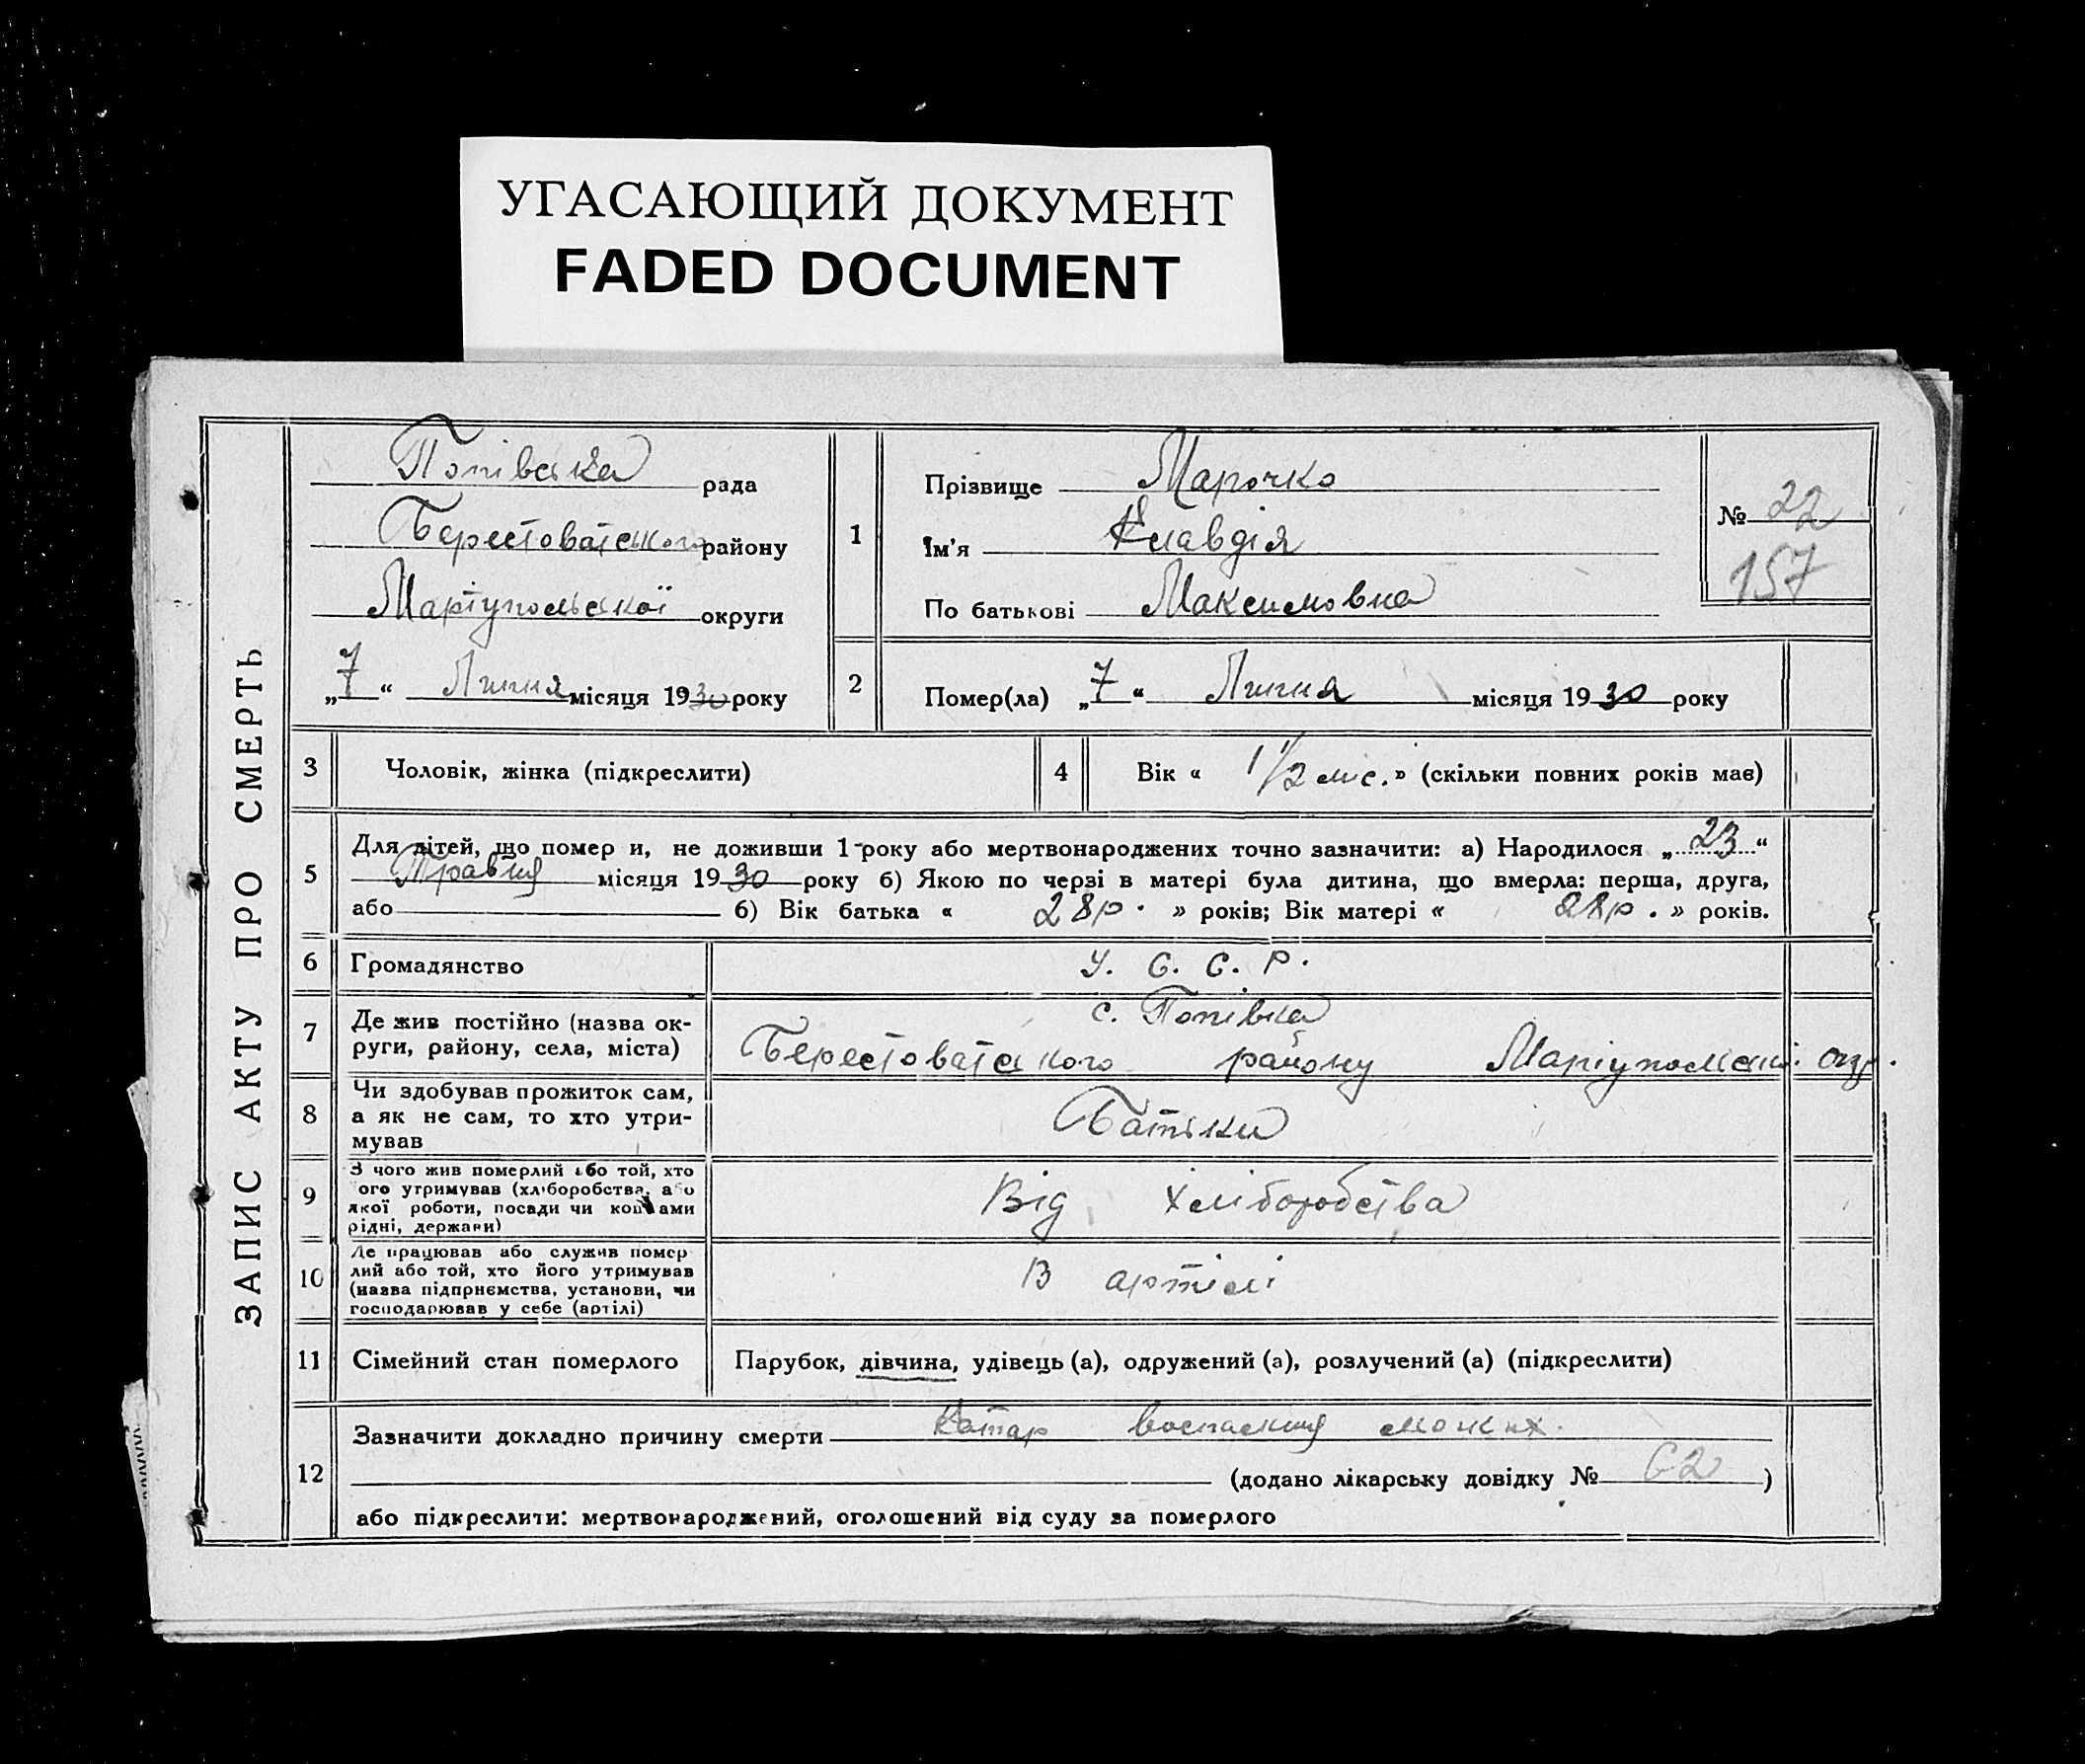 УГАСАЮЩИЙ ДОКУМЕНТ
FADED DOCUMENT
ЗАПИС АКТУ ПРО СМЕРТЬ
Попівська рада
Берестоватського району
Маріупольської округи
„7“ Липня місяця 1930 року
1
Прізвище Марочко
Ім'я Клавдія
По батькові Максимовна
№ 22
157
2 Помер(ла) „7“ Липня місяця 1930 року
3 Чоловік, жінка (підкреслити)
4 Вік « 1 1/2 міс. » (скільки повних років має)
5 Для дітей, що помер и, не доживши 1 року або мертвонароджених точно зазначити: а) Народилося „23“
Травня місяця 1930 року б) Якою по черзі в матері була дитина, що вмерла: перша, друга,
або б) Вік батька « 28 р. » років; Вік матері « 28 р. » років.
6 Громадянство У. С. С. Р.
7 Де жив постійно (назва ок-
руги, району, села, міста)
с. Попівка
Берестоватського району Маріупольські окр.
8 Чи здобував прожиток сам,
а як не сам, то хто утри-
мував
Батьки
9 З чого жив померлий або той, хто
ого утримував (хліборобства, або
якої роботи, посади чи коштами
рідні, держави)
Від хліборобства
10 Де працював або служив помер
лий або той, хто його утримував
(назва підприємства, установи, чи
господарював у себе (артілі)
В артілі
11 Сімейний стан померлого Парубок, дівчина, удівець (а), одружений (а), розлучений (а) (підкреслити)
12 Зазначити докладно причину смерти Катар воспаления
(додано лікарську довідку № 62)
або підкреслити: мертвонароджений, оголошений від суду за померлого